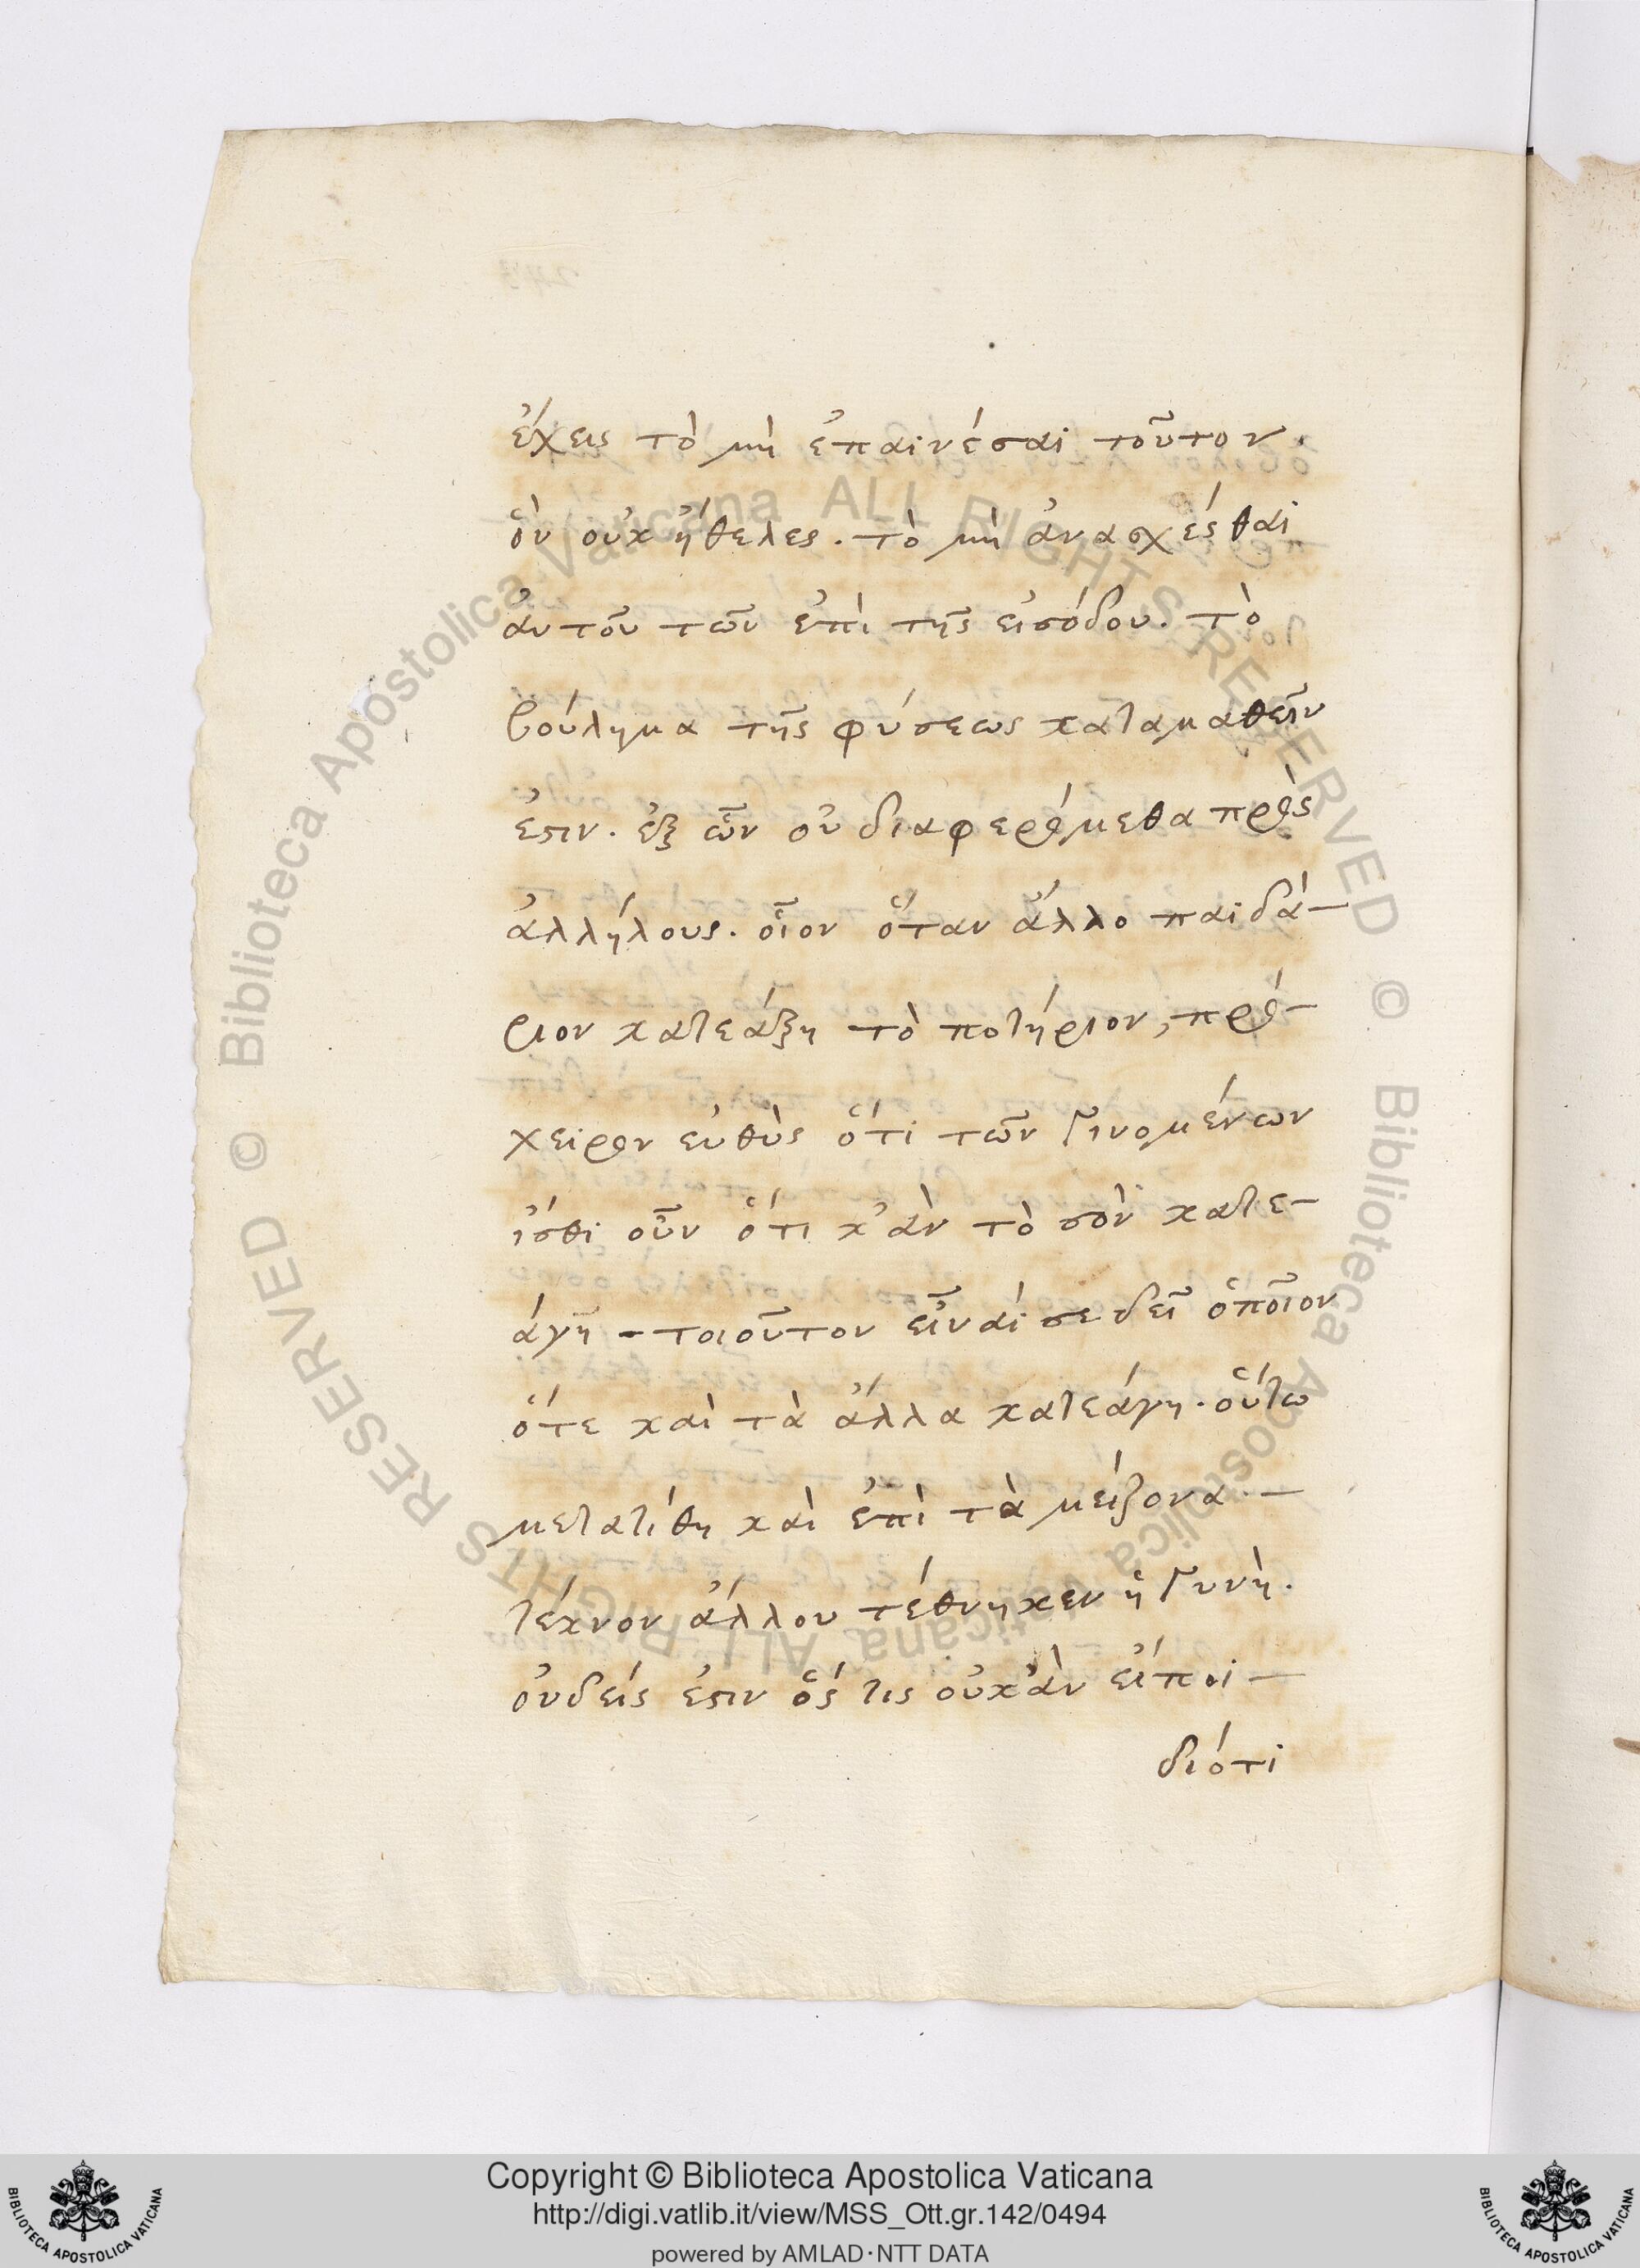 ἔχεις τὸ μὴ ἐπαινέσαι τοῦτον.
ὃν οὐκ ἤθελες. τὸ μὴ ἀνασχέσθαι
ἀυτοῦ τῶν ἐπὶ τῆς εἰσόδου. τὸ
βούλημα τῆς φύσεως καταμαθεῖν
ἐστιν. ἐξ ὧν οὐ διαφερόμεθα πρὸς
ἀλλήλους. οἷον ὅταν ἄλλο παιδά-
ριον κατεάξη τὸ ποτήριον, πρό-
χειρον εὐθὺς ὅτι τῶν γινομένων
ἴσθι οὖν ὅτι κ'ἂν τὸ σὸν κατε-
άγῆ - τοιοῦτον εἶναί σε δεῖ ὁποῖον
ὅτε καὶ τὰ ἄλλα κατεάγη. οὕτω
μετατίθη καὶ ἐπὶ τὰ μείζονα -
τέκνον ἄλλου τέθνηκεν ἢ γυνὴ.
ὀυδείς ἐστιν ὅς τις οὐκ'ἂν εἴποι -
διότι
Copyright © Biblioteca Apostolica Vaticana
http://digi.vatlib.it/view/MSS_Ott.gr.142/0494
powered by AMLAD·NTT DATA
BIBLIOTECA APOSTOLICA VATICANA
BIBLIOTECA APOSTOLICA VATICANA
© Biblioteca Apostolica Vaticana ALL RIGHTS RESERVED
© Biblioteca Apostolica Vaticana ALL RIGHTS RESERVED